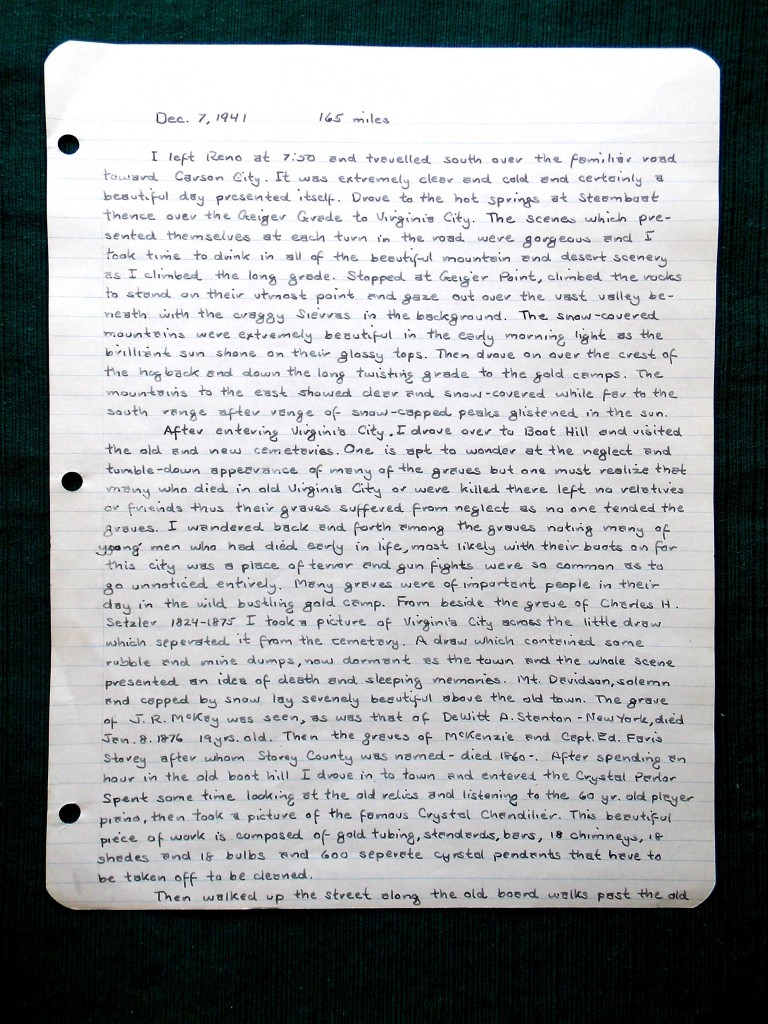 Dec. 7, 1941 165 miles
I left Reno at 7:50 and travelled south over the familiar road
toward Carson City. It was extremely clear and cold and certainly a
beautiful day presented itself. Drove to the hot springs at Steamboat
thence over the Geiger Grade to Virginia City. The scenes which pre-
sented themselves at each turn in the road were gorgeous and I
took time to drink in all of the beautiful mountain and desert scenery
as I climbed the long grade. Stopped at Geiger Point, climbed the rocks
to stand on their utmost point and gaze out over the vast valley be-
neath with the craggy Sierras in the background. The snow-covered
mountains were extremely beautiful in the early morning light as the
brilliant sun shone on their glossy tops. Then drove on over the crest of
the hogback and down the long twisting grade to the gold camps. The
mountains to the east showed clear and snow-covered while far to the
south range after range of snow-capped peaks glistened in the sun.
After entering Virginia City, I drove over to Boot Hill and visited
the old and new cemetaries. One is apt to wonder at the neglect and
tumble-down appearance of many of the graves but one must realize that
many who died in old Virginia City or were killed there left no relatives
or friends thus their graves suffered from neglect as no one tended the
graves. I wandered back and forth among the graves noting many of
young men who had died early in life, most likely with their boots on for
this city was a place of terror and gun fights were so common as to
go unnoticed entirely. Many graves were of important people in their
day in the wild bustling gold camp. From beside the grave of Charles H.
Setzler 1824-1875 I took a picture of Virginia City across the little draw
which seperated it from the cemetary. A draw which contained some
rubble and mine dumps, now dormant as the town and the whole scene
presented an idea of death and sleeping memories. Mt. Davidson, solemn
and capped by snow lay serenely beautiful above the old town. The grave
of J. R. McKay was seen, as was that of Dewitt A. Stanton - New York, died
Jan. 8. 1876 19 yrs. old. Then the graves of McKenzie and Capt. Ed. Faris
Storey after whom Storey County was named - died 1860-. After spending an
hour in the old boot hill I drove in to town and entered the Crystal Parlor
Spent some time looking at the old relics and listening to the 60 yr. old player
piano, then took a picture of the famous Crystal Chandilier. This beautiful
piece of work is composed of gold tubing, standards, bars, 18 chimneys, 18
shades and 18 bulbs and 600 seperate cyrstal pendants that have to
be taken off to be cleaned.
Then walked up the street along the old board walks past the old